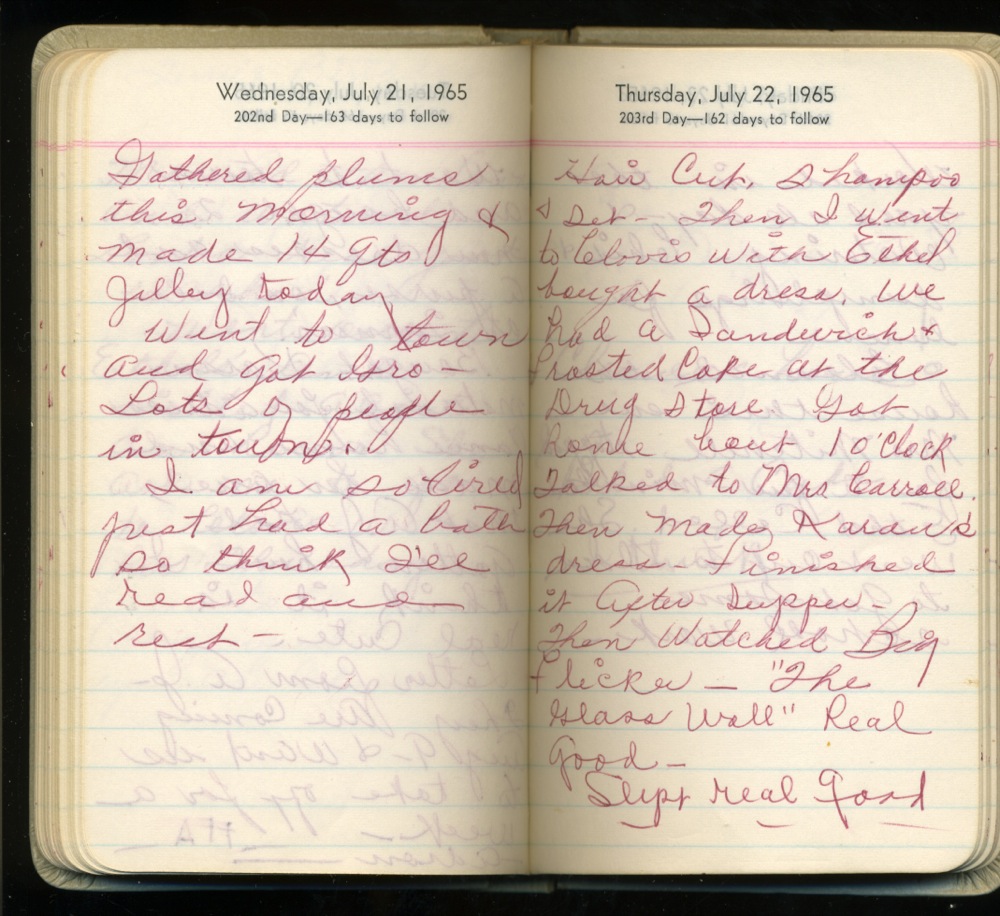 Wednesday, July 21, 1965
202nd Day—163 days to follow
Gathered plums
this morning &
made 14 qts
Jelley today
Went to town
and got Gro-
Lots of people
in town.
I am so tired
just had a bath
so think I'll
read and
rest -
Thursday, July 22, 1965
203rd Day—162 days to follow
Hair Cut, Shampoo
& Set - Then I went
to Clovis with Ethel
bought a dress. We
had a Sandwich &
frosted Coke at the
Drug Store Got
home bout 1 o'clock
Talked to Mrs Carroll.
Then made Karan's
dress - Finished
it After Supper -
Then Watched Big
Flicker - "The
Glass Wall" Real
Good -
Slept real Good